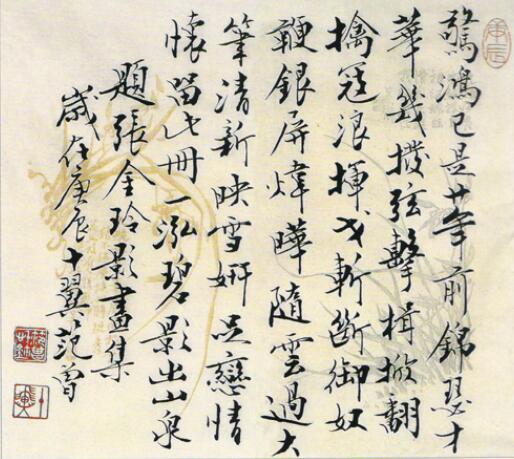 驚鴻已是廿年前錦瑟才
華幾撥弦擊楫掀翻
擒寇浪揮戈斬斷御奴
鞭銀屏煒曄隨雲過大
筆清新映雪妍足戀情
懷留此冊一泓碧影出山泉
題張金玲影畫集
歲在庚辰十翼范曾
庚辰